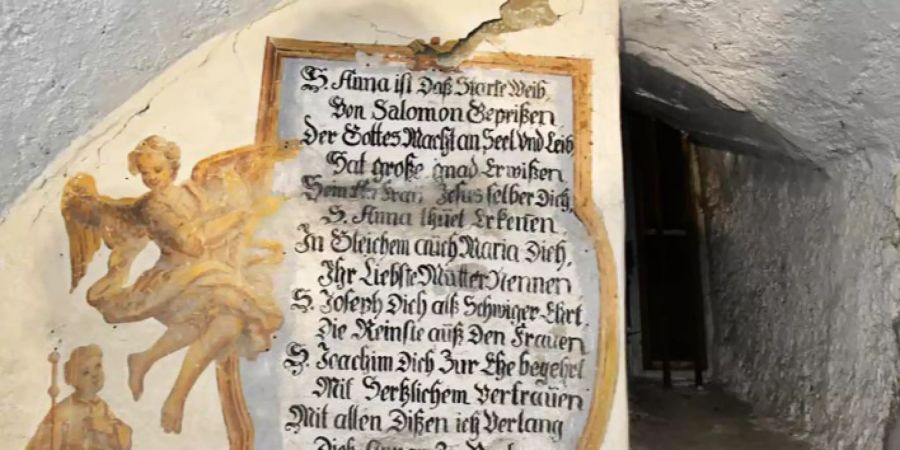 S. Anna ist Daß Starke Weib,
Von Salomon Geprißen
Der Gottes Macht an Seel Vnd Leib
Hat große gnad Erwißen
Jesus selber Dich,
S. Anna thuet Erkeñen
In Gleichem auch Maria Dich,
Ihr Liebste Mutter Nennen
S. Joseph Dich alß Schwiger Ehrt,
Die Reinste auß Den Frauen
S. Joachim Dich Zur Ehe begehrt
Mit Hertzlichem Vertrauen
Mit allen Dißen ich Verlang